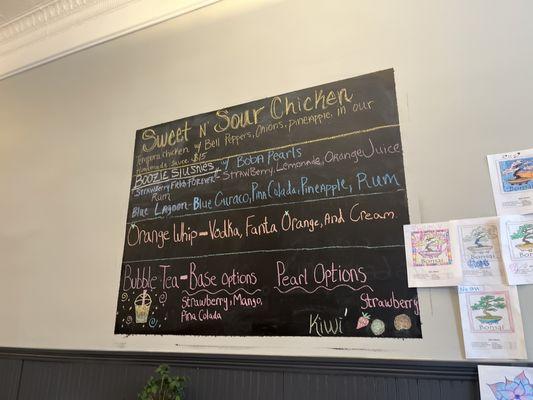 Sweet n' Sour Chicken
Tempura chicken w/ Bell Peppers, Onions, pineapple, in our
Homemade Sauce $15
BOOZIE SLUSHIES w/ Boba Pearls
Strawberry Field Forever - Strawberry, Lemonade, Orange Juice
Rum
Blue Lagoon - Blue Curaco, Pina Colada, Pineapple, Rum
Orange Whip - Vodka, Fanta Orange, And Cream
Bubble Tea - Base Options
Strawberry, Mango,
Pina Colada
Pearl Options
Strawberry
Kiwi
Bonsai
Bonsai
Bonsai
Bonsai